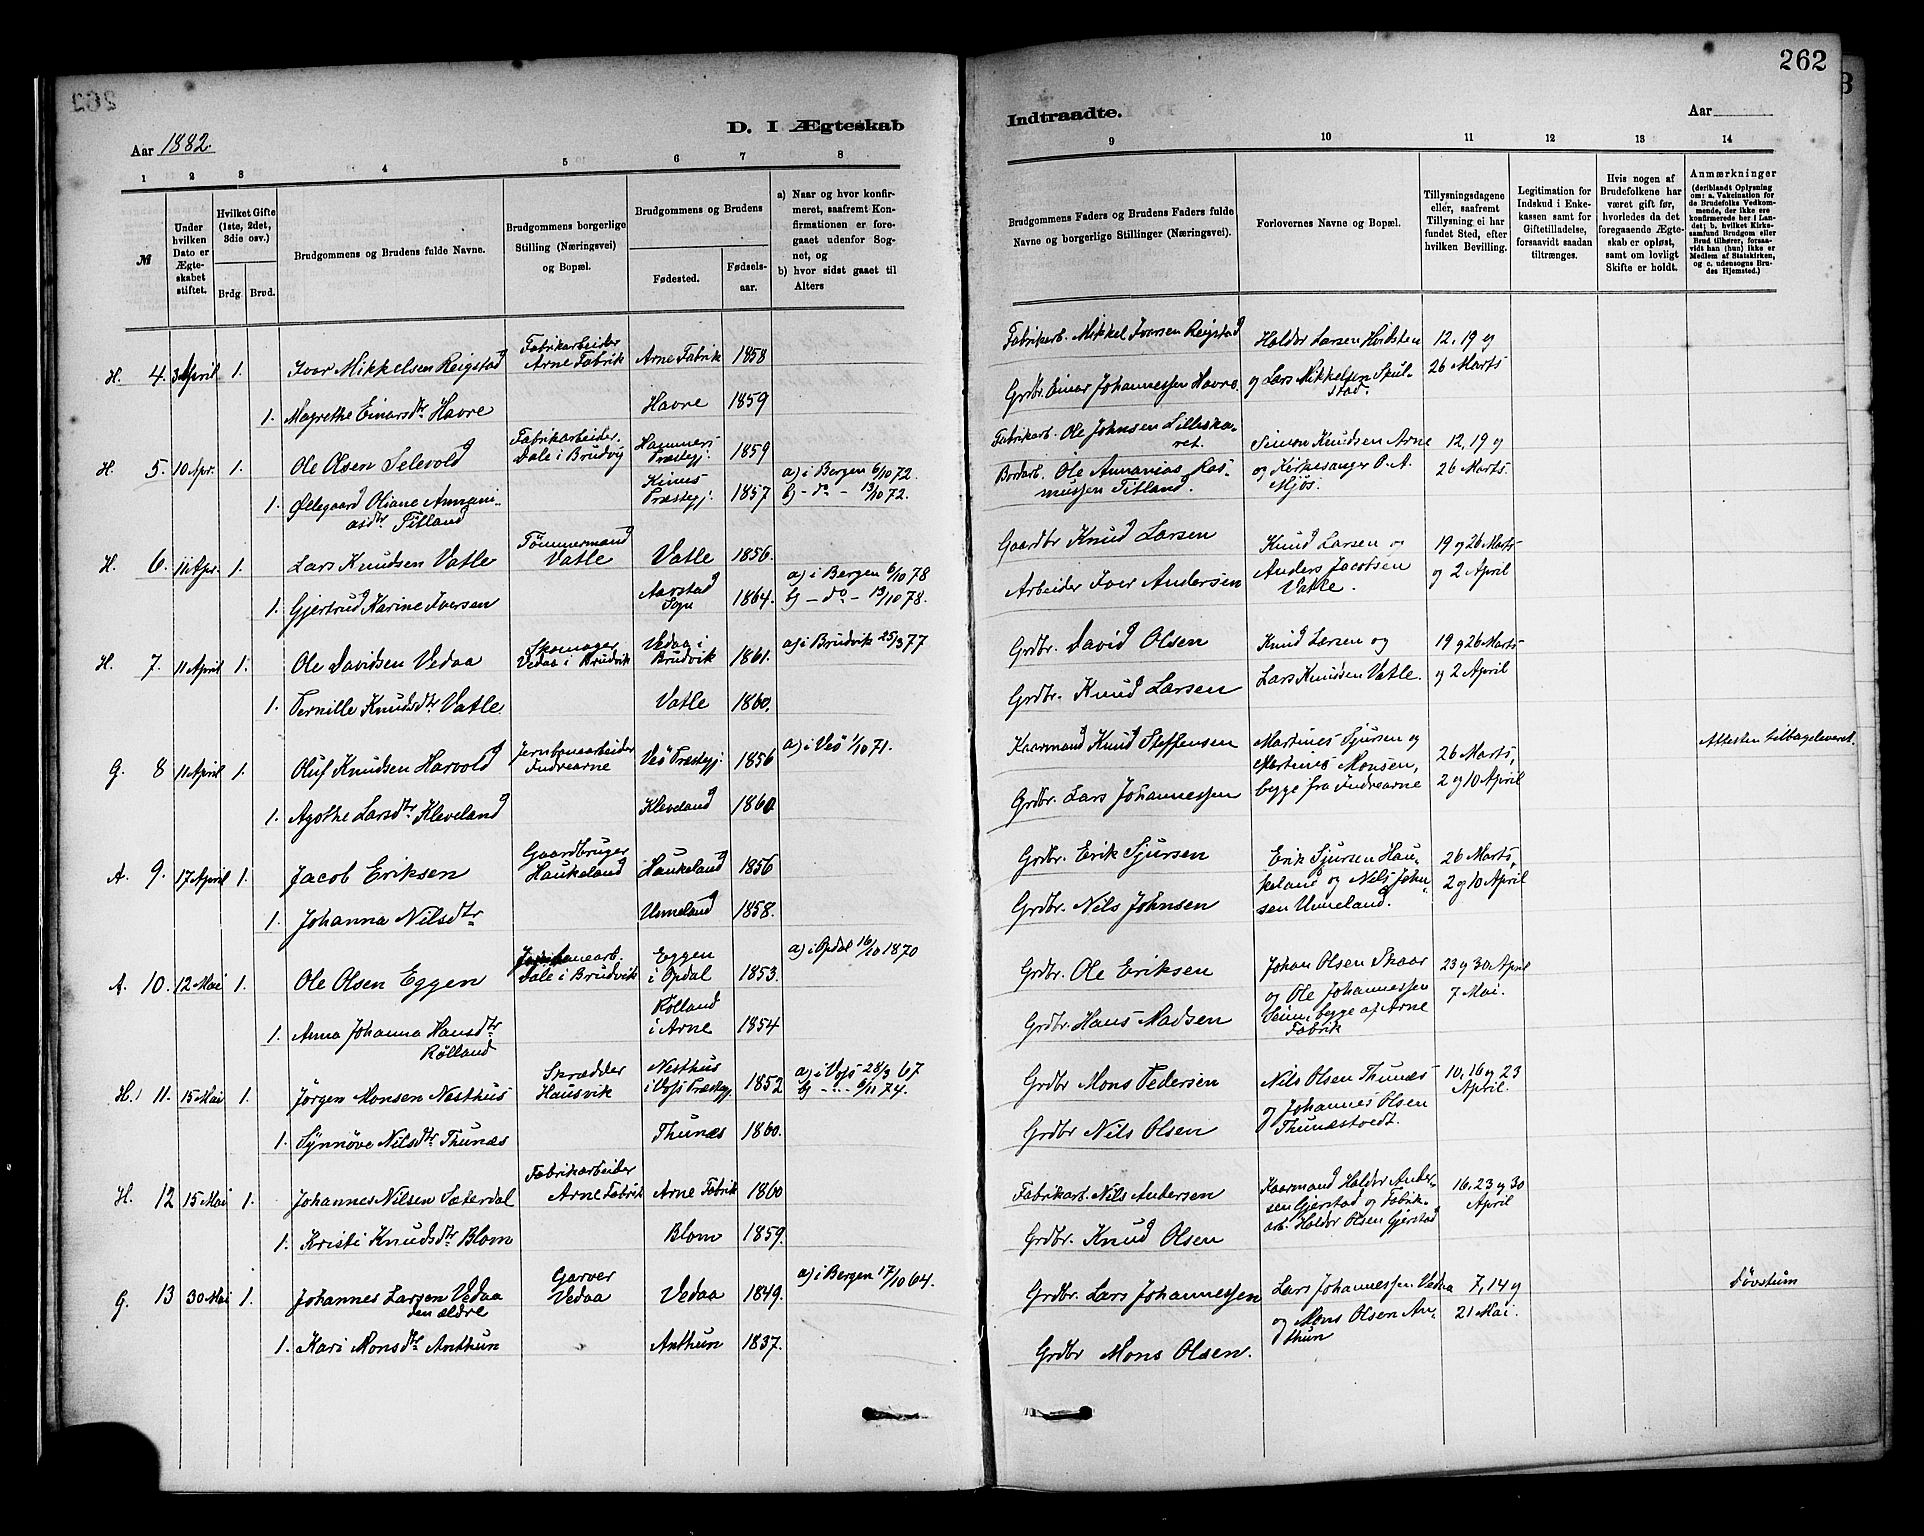 262
Aar 1882.
D. I Ægteskab
Indtraadte.
Aar
1 2 3 4 5 6 7 8
9 10 11 12 13 14
№
Under hvilken Dato er Ægteskabet stiftet.
Hvilket Gifte (1ste, 2det, 3die osv.)
Brdg. Brud.
Brudgommens og Brudens fulde Navne.
Brudgommens borgerlige Stilling (Næringsvei) og Bopæl.
Brudgommens og Brudens
Fødested.
Fødselsaar.
a) Naar og hvor konfirmeret, saafremt Konfirmationen er foregaaet udenfor Sognet, og
b) hvor sidst gaaet til Alters
Brudgommens Faders og Brudens Faders fulde Navne og borgerlige Stillinger (Næringsvei).
Forlovernes Navne og Bopæl.
Tillysningsdagene eller, saafremt Tillysning ei har fundet Sted, efter hvilken Bevilling.
Legitimation for Indskud i Enkekassen samt for Giftetilladelse, forsaavidt saadan tiltrænges.
Hvis nogen af Brudefolkene har været gift før, hvorledes da det foregaaende Ægteskab er opløst, samt om lovligt Skifte er holdt.
Anmærkninger
(deriblandt Oplysning om: a. Vakcination for de Brudefolks Vedkommende, der ikke ere konfirmerede her i Landet; b, hvilket Kirkesamfund Brudgom eller Brud tilhører, forsaavidt han (hun) ikke er Medlem af Statskirken, og c. udensogns Brudes Hjemsted.)
H. 4. 3 April 1. Ivar Mikkelsen Reigstad Fabrikarbeider Arne Fabrik Arne Fabrik 1858 Fabrikarb. Mikkel Iversen Reigstad Haldor Larsen Hvidsten 12, 19 og
1. Magrethe Einarsdtr Havre Havre 1859 Grdbr. Einar Johannessen Havre. og Lars Mikkelsen Spulstad. 26 Marts
H. 5. 10 Apr. 1. Ole Olsen Selevold Fabrikarbeider. Dale i Brudvig Hammers Præstegj: 1859 Fabrikarb. Ole Johnsen Lilleskaret. Simon Knudsen Arne 12, 19 og
1. Øllegaard Oliane Annaniasdtr Titland Kinns Præstegj: 1857 a) i Bergen 6/10 72. b) - do - 13/10 72. Bordarb. Ole Annanias Rasmussen Titland. og Kirkesanger O. A. Mjøs. 26 Marts
H. 6. 11 Apr. 1. Lars Knudsen Vatle Tømmermand Vatle Vatle 1856. Gaardbr Knud Larsen Knud Larsen og 19 og 26 Marts
1. Gjertrud Karine Iversen Aarstad Sogn 1864. a) i Bergen 6/10 78 b) - do - 13/10 78. Arbeider Iver Andersen Anders Jacobsen Vatle. og 2 April
H. 7. 11 April 1. Ole Davidsen Vedaa Skomager Vedaa i Brudvik Vedaa i Brudvik 1861. a) i Brudvik 25/3 77 Grdbr. David Olsen Knud Larsen og 19 og 26 Marts
1. Pernille Knudsdtr Vatle Vatle 1860. Grdbr. Knud Larsen Lars Knudsen Vatle. og 2 April
G. 8 11 April 1. Oluf Knudsen Harvold Jernbanearbeider Indrearne Veö Præstegj: 1856 a) i Veö 1/10 71. Kaarmand Knud Steffensen Martines Sjursen og 26 Marts, Attesten tilbageleveret.
1. Agothe Larsdtr Kleveland Kleveland 1860 Grdbr. Lars Johannessen Martines Monsen, begge fra Indrearne 2 og 10 April
A. 9. 17 April 1. Jacob Eriksen Gaardbruger Haukeland Haukeland 1856 Grdbr. Erik Sjursen Erik Sjursen Hau- 26 Marts,
1. Johanna Nilsdtr Unneland 1858. Grdbr. Nils Johnsen keland og Nils Johnsen Unneland. 2 og 10 April
A. 10. 12 Mai 1. Ole Olsen Eggen Jernbanearb. Dale i Brudvik Eggen i Opdal 1853. a) i Opdal 16/10 1870 Grdbr. Ole Eriksen Johan Olsen Skaar 23 og 30 April
1. Anna Johanna Hansdtr Rølland Rølland i Arne 1854 Grdbr. Hans Madsen og Ole Johannessen Veum, begge af Arne Fabrik 7 Mai.
H. 11. 15 Mai 1. Jørgen Monsen Nesthus Skrædder Hausvik Nesthus i Vofs Præstegj. 1852 a) i Vofs 28/3 67 b) - .. - 6/11 74. Grdbr Mons Pedersen Nils Olsen Thunæs 10, 16 og 23 April.
1. Synnøve Nilsdtr Thunæs Thunæs 1860. Grdbr Nils Olsen og Johannes Olsen Thunæstvedt.
H. 12 15 Mai 1. Johannes Nilsen Sæterdal Fabrikarbeider Arne Fabrik Arne Fabrik 1860 Fabrikarb. Nils Andersen Kaarmand Haldor Ander- 16, 23 og 30 April
1. Kristi Knudsdtr Blom Blom 1859. Grdbr. Knud Olsen sen Gjerstad og Fabrikarb. Haldor Olsen Gjerstad
G. 13 30 Mai 1. Johannes Larsen Vedaa den ældre Garver Vedaa Vedaa 1849. a) i Bergen 17/10 64. Grdbr. Lars Johannessen Lars Johannessen Vedaa 7, 14 og Døvstum
1. Kari Monsdtr Anthun Anthun 1837. Grdbr Mons Olsen. og Mons Olsen Anthun 21 Mai.